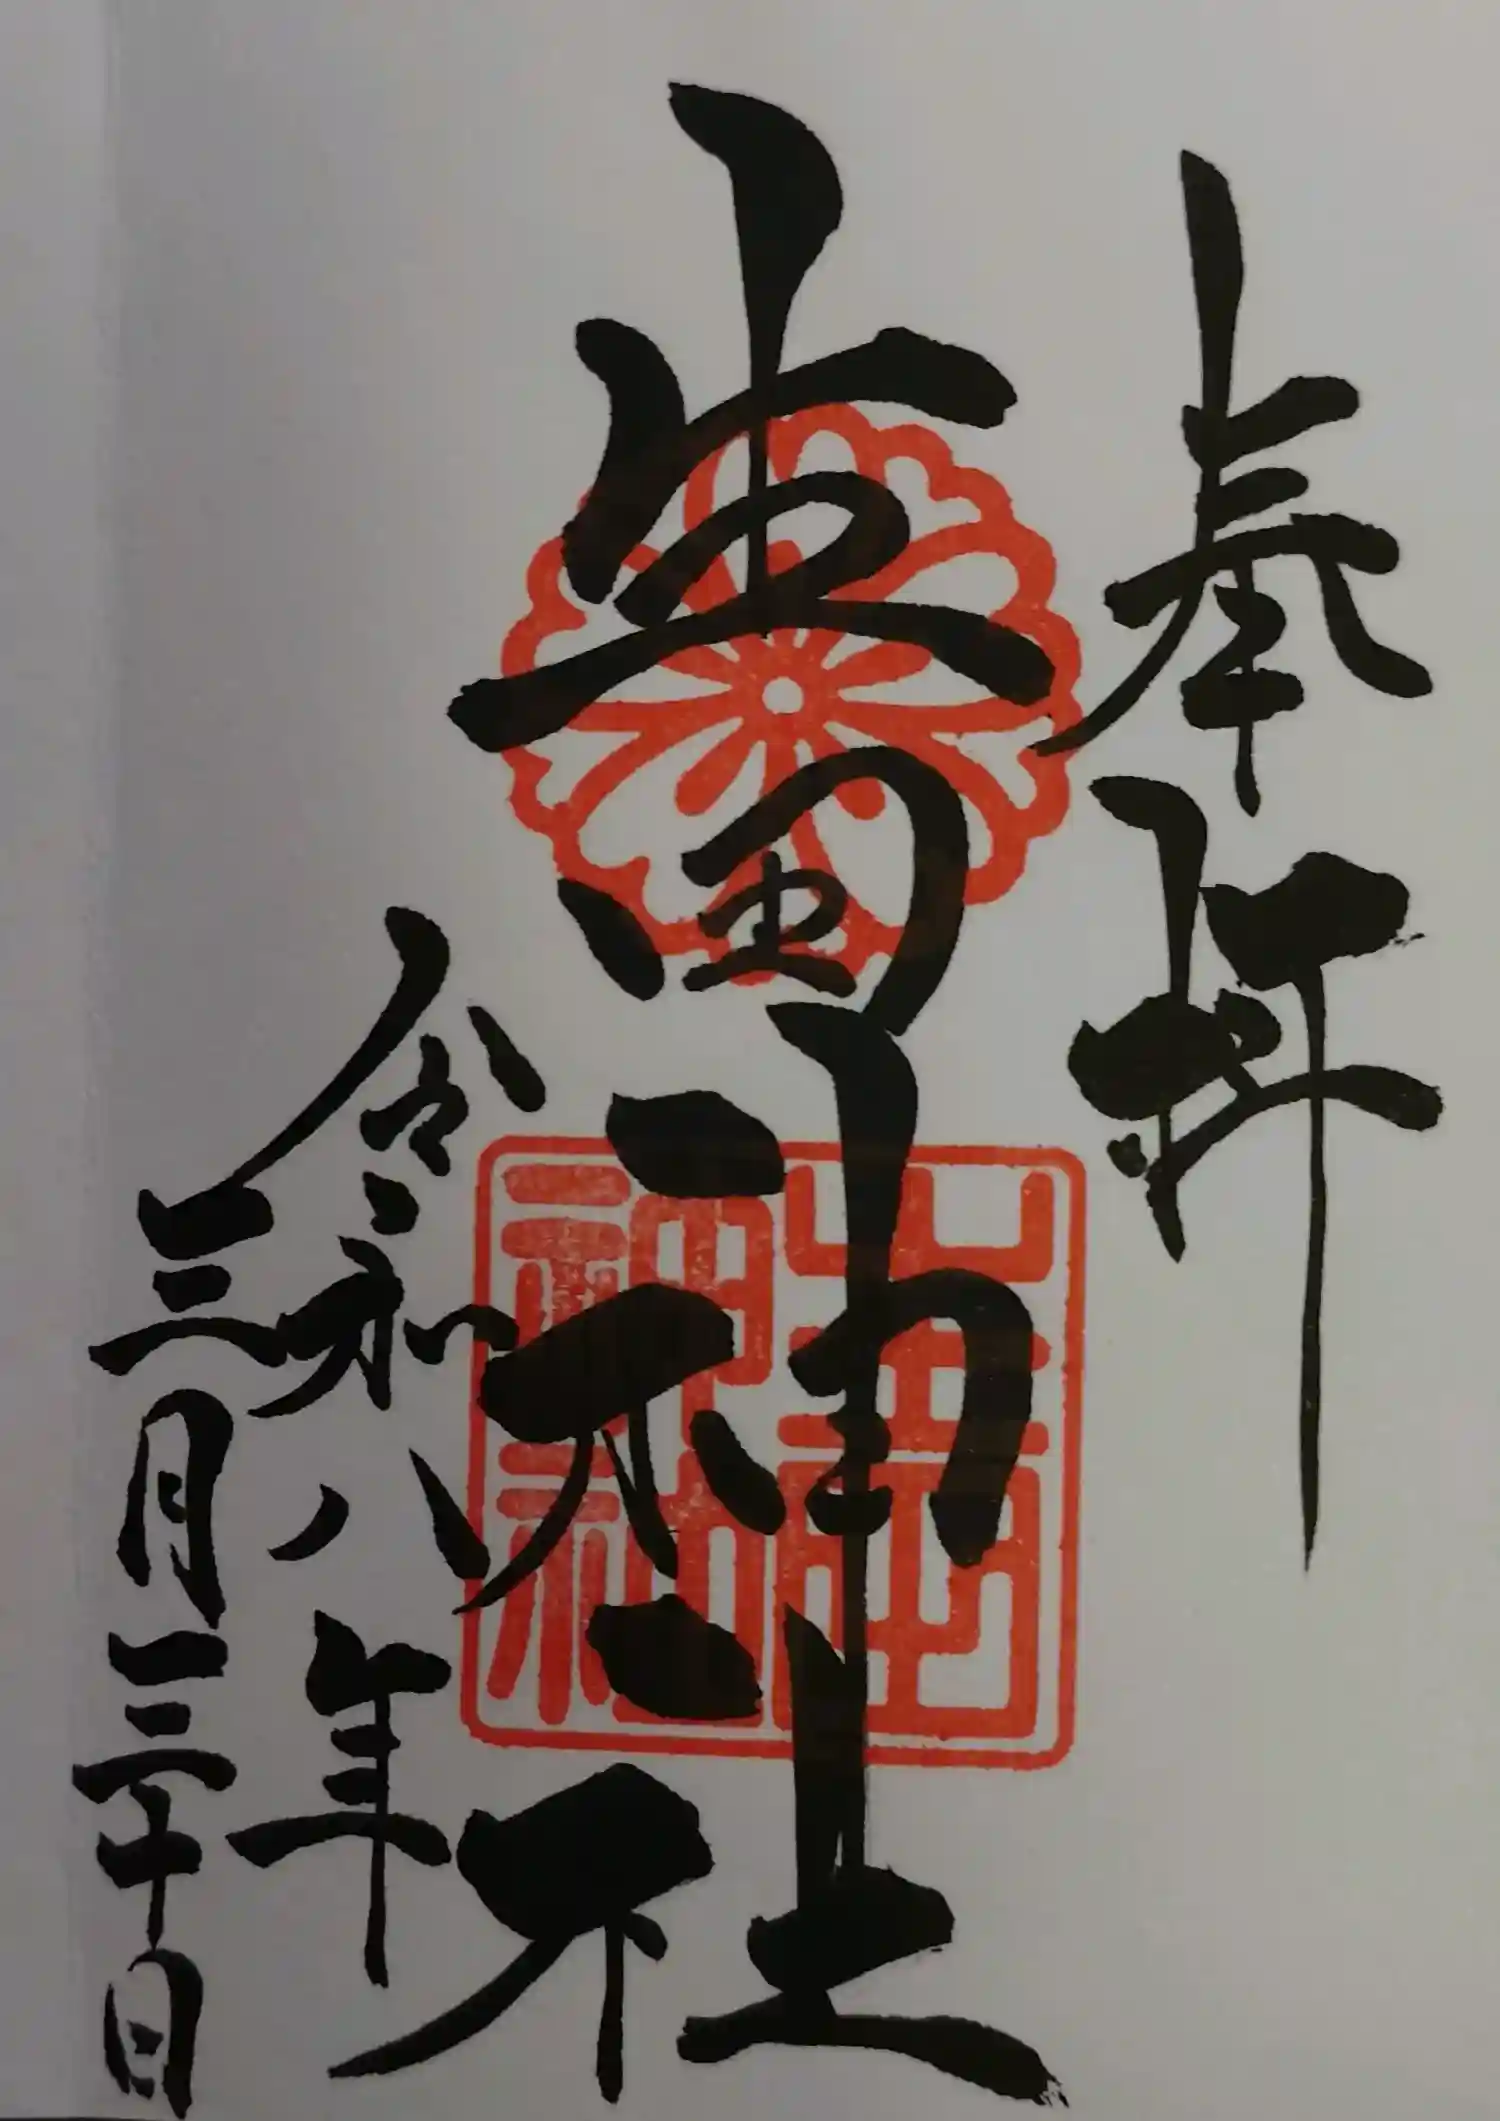 奉拝
生田神社
令和八年
三月三十日
生田
神社